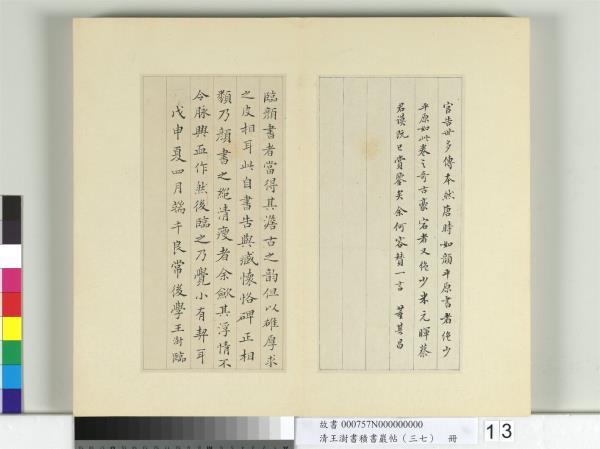 官告世多傳本然唐時如顏平原書者絕少
平原如此卷之奇古豪宕者又絕少米元暉蔡
君謨阮已賞鑒矣余何容贊一言 董其昌
臨顏書者當得其澹古之韵但以雄厚求
之皮相耳此自書告與臧懷恪碑正相
類乃顏書之絕清瘦者余歛其浮情不
令脉興血作然後臨之乃覺小有契耳
戊申夏四月端午良常後學王澍臨
故書 000757N000000000
清王澍書積書巖帖(三七) 冊
13